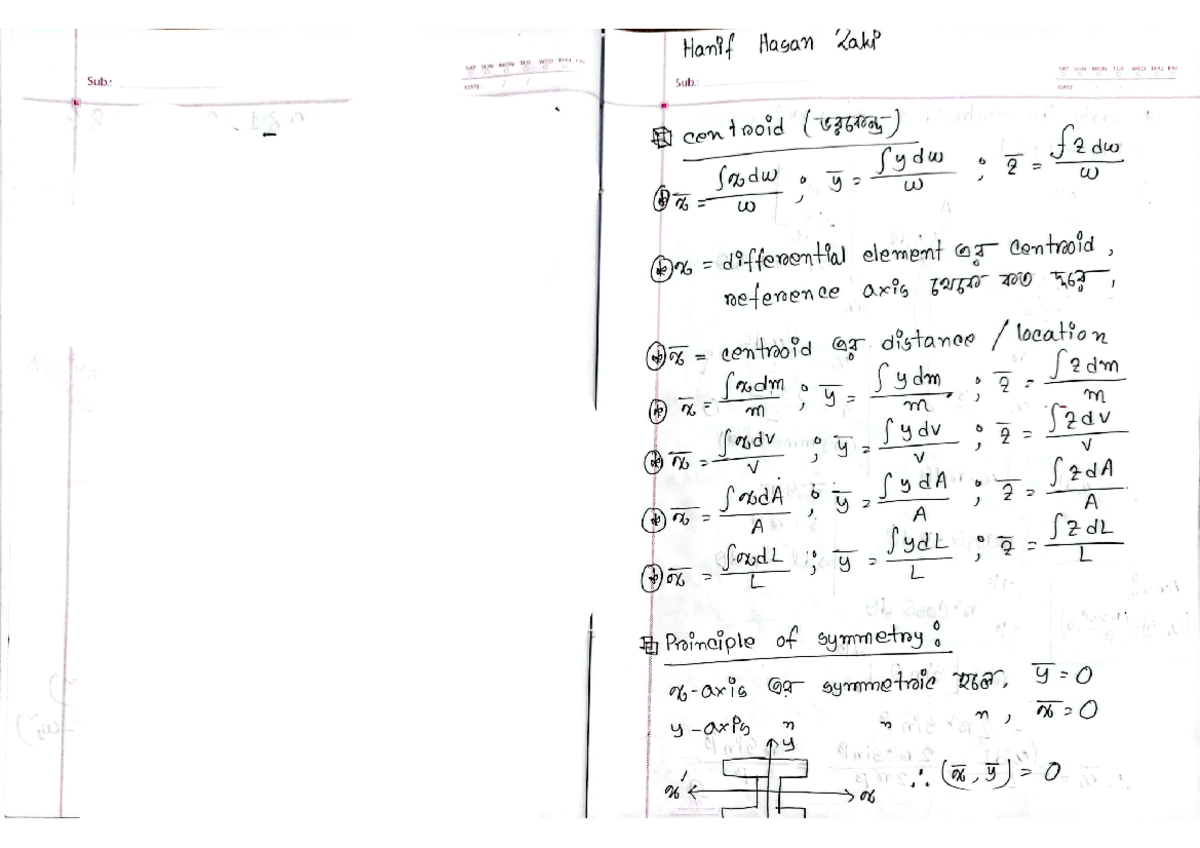 Sub.:
SAT SUN MON TUE WED THU FRI
DATE : / /
Hanif Hasan Zaki
Sub.:
SAT SUN MON TUE WED THU FRI
DATE : / /
centroid (ভরকেন্দ্র)
x̄ = ∫xdw/w ; ȳ = ∫ydw/w ; z̄ = ∫zdw/w
x = differential element এর centroid,
reference axis থেকে কত দূরে,
x̄ = centroid এর distance / location
x̄ = ∫xdm/m ; ȳ = ∫ydm/m ; z̄ = ∫zdm/m
x̄ = ∫xdv/v ; ȳ = ∫ydv/v ; z̄ = ∫zdv/v
x̄ = ∫xdA/A ; ȳ = ∫ydA/A ; z̄ = ∫zdA/A
x̄ = ∫xdL/L ; ȳ = ∫ydL/L ; z̄ = ∫zdL/L
Principle of symmetry:
x-axis এর symmetric হলে, ȳ = 0
y-axis " " ", x̄ = 0
y
x' x ∴ (x̄, ȳ) = 0